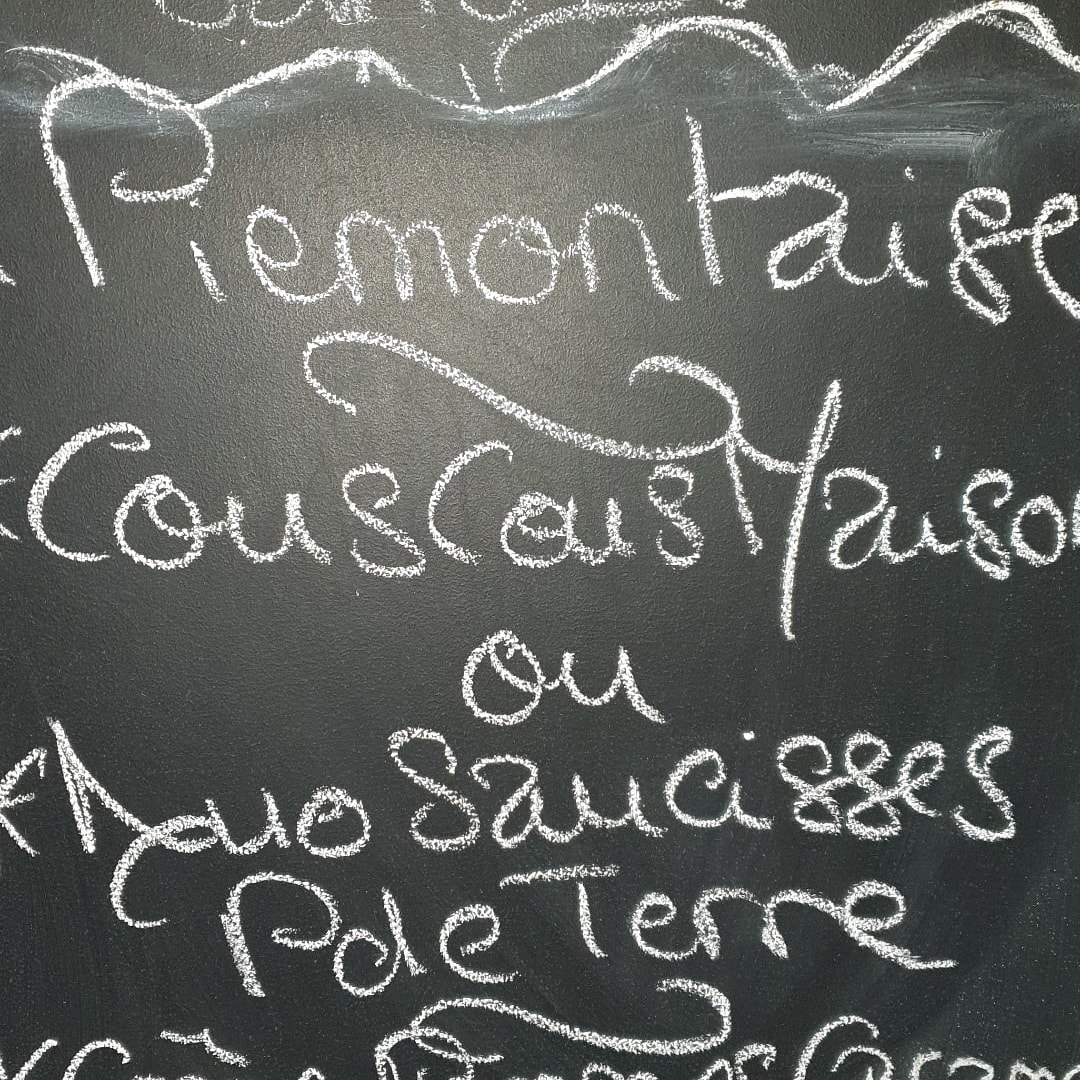 Piemontaise
Couscous Maison
ou
Duo Saucisses
P de Terre